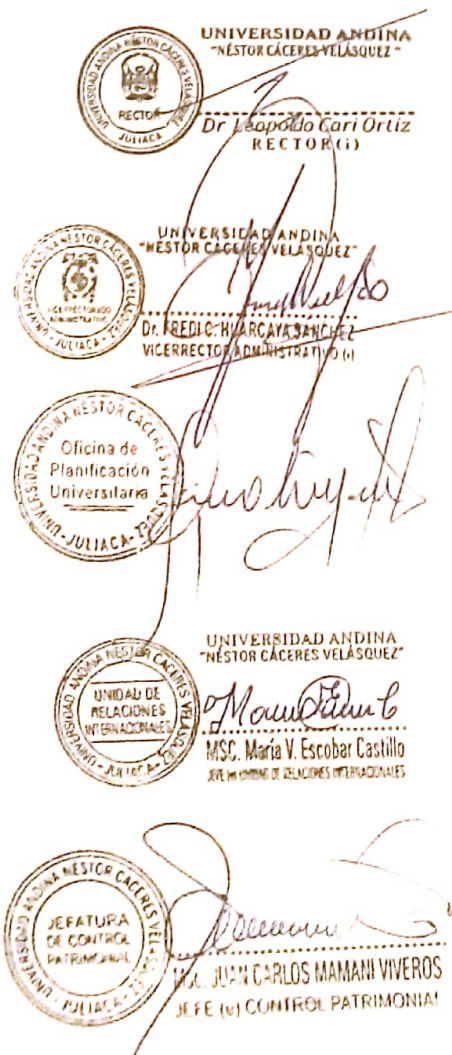 UNIVERSIDAD ANDINA
"NÉSTOR CÁCERES VELÁSQUEZ"
UNIVERSIDAD ANDINA NÉSTOR CÁCERES VELÁSQUEZ
RECTOR
JULIACA
Dr Leopoldo Cari Ortiz
RECTOR (i)
UNIVERSIDAD ANDINA
"NESTOR CACERES VELASQUEZ"
UNIVERSIDAD ANDINA NESTOR CACERES VELASQUEZ
VICERRECTORADO
ADMINISTRATIVO
- JULIACA -
Dr. FREDI C. HUARCAYA SANCHEZ
VICERRECTOR ADMINISTRATIVO (i)
UNIVERSIDAD ANDINA NESTOR CACERES VELASQUEZ
Oficina de
Planificación
Universitaria
- JULIACA -
UNIVERSIDAD ANDINA
"NÉSTOR CÁCERES VELÁSQUEZ"
UNIVERSIDAD ANDINA NESTOR CACERES VELASQUEZ
UNIDAD DE
RELACIONES
INTERNACIONALES
- JULIACA -
MSC. María V. Escobar Castillo
UNIDAD DE RELACIONES INTERNACIONALES
UNIVERSIDAD ANDINA NESTOR CACERES VELASQUEZ
JEFATURA
DE CONTROL
PATRIMONIAL
- JULIACA -
MSC. JUAN CARLOS MAMANI VIVEROS
JEFE (e) CONTROL PATRIMONIAL